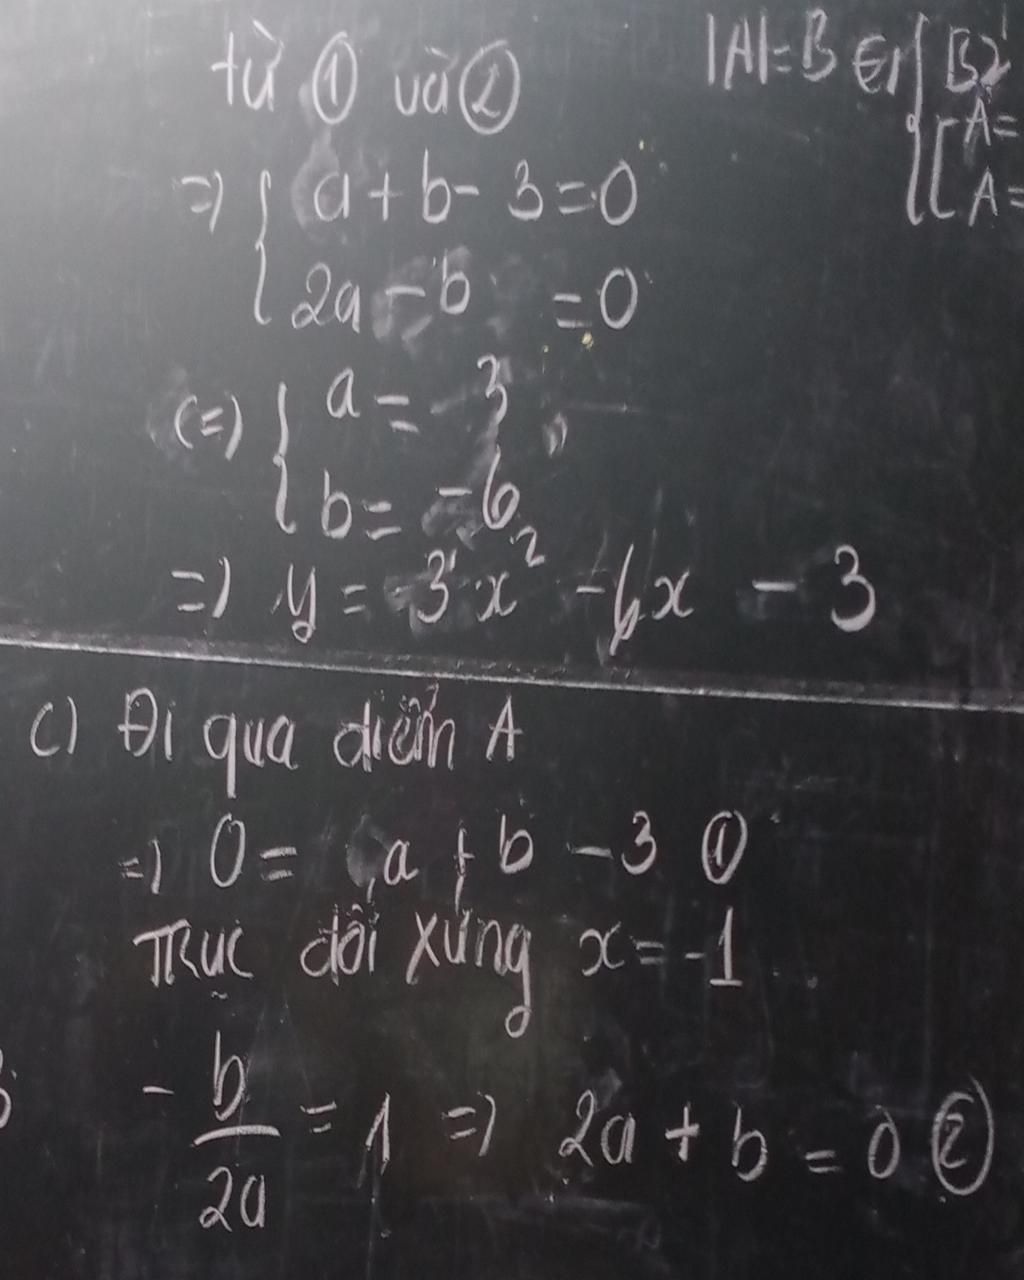 từ ① và ②
|A|=B ⇔ { B≥
[ A=
A=
=> { a + b - 3 = 0
2a - b = 0
<=> { a = 3
b = -6
=> y = -3x² - 6x - 3
c) Đi qua điểm A
=> 0 = a + b - 3 ①
Trục đối xứng x = -1
- b/2a = 1 => 2a + b = 0 ②